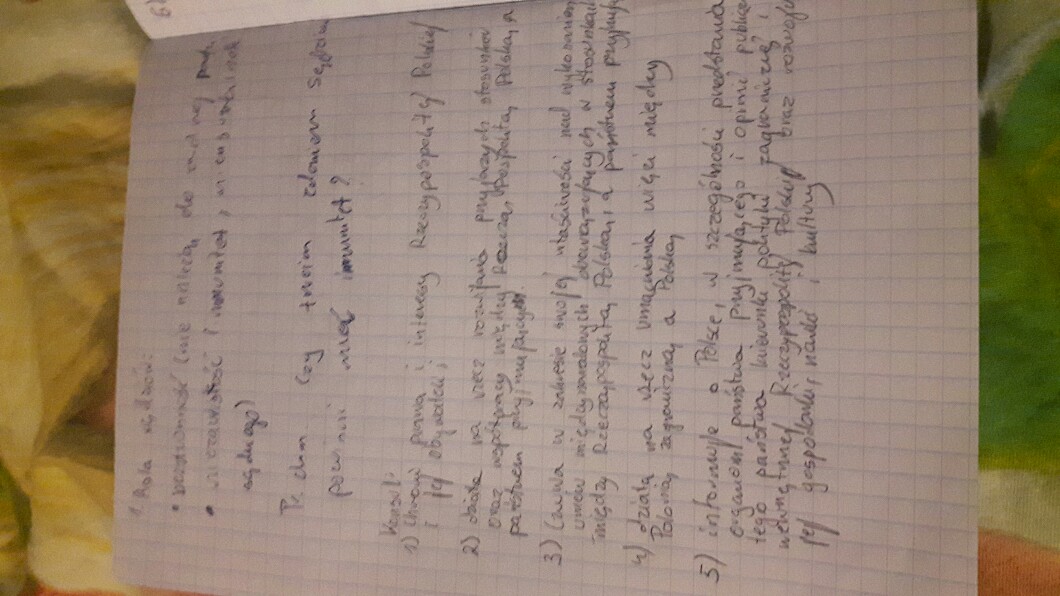 1. Rola sędziów:
• bezstronność (nie należą do żadnej
• niezawisłość i immunitet,
sądnego)
Pr. dom Czy twoim zdaniem sędziowie
powinni mieć immunitet?
Konsul:
1) Chroni prawa i interesy Rzeczypospolitej Polskiej
i jej obywateli;
2) działa na rzecz rozwijania przyjaznych stosunków
oraz współpracy między Rzeczą Pospolitą Polską, a
państwem przyjmującym.
3) Czuwa w zakresie swojej właściwości nad wykonaniem
umów międzynarodowych obowiązujących w stosunkach
między Rzecząpospolitą Polską, a państwem
4) działa na rzecz umacniania więzi między
Polonią zagraniczną, a Polską
5) informuje o Polsce, w szczególności przedstawia
organom państwa przyjmującego i opinii
tego państwa kierunki polityki zagranicznej i
wewnętrznej Rzeczypospolity Polskiej oraz
jej gospodarki, nauki i kultury
6)